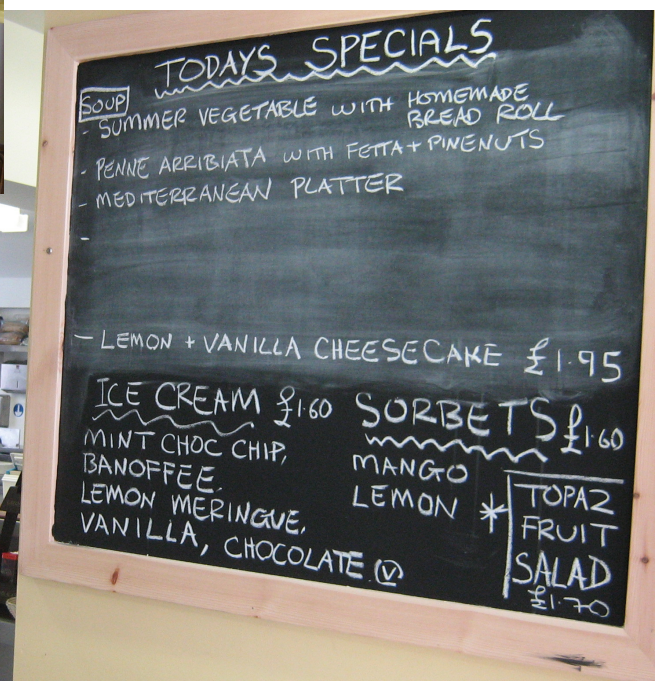 TODAYS SPECIALS
SOUP
- SUMMER VEGETABLE WITH HOMEMADE
BREAD ROLL
- PENNE ARRIBIATA WITH FETTA + PINENUTS
- MEDITERRANEAN PLATTER
-
- LEMON + VANILLA CHEESECAKE £1.95
ICE CREAM £1.60
MINT CHOC CHIP,
BANOFFEE.
LEMON MERINGUE.
VANILLA, CHOCOLATE (V)
SORBETS £1.60
MANGO
LEMON
* TOPAZ
FRUIT
SALAD
£1.70